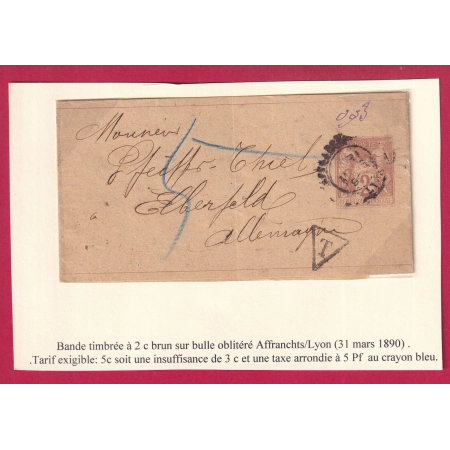 Monsieur
Pfeiffer-Thiel
Elberfeld
à
Allemagne
5
T
Bande timbrée à 2 c brun sur bulle oblitéré Affranchts/Lyon (31 mars 1890) .
.Tarif exigible: 5c soit une insuffisance de 3 c et une taxe arrondie à 5 Pf au crayon bleu.